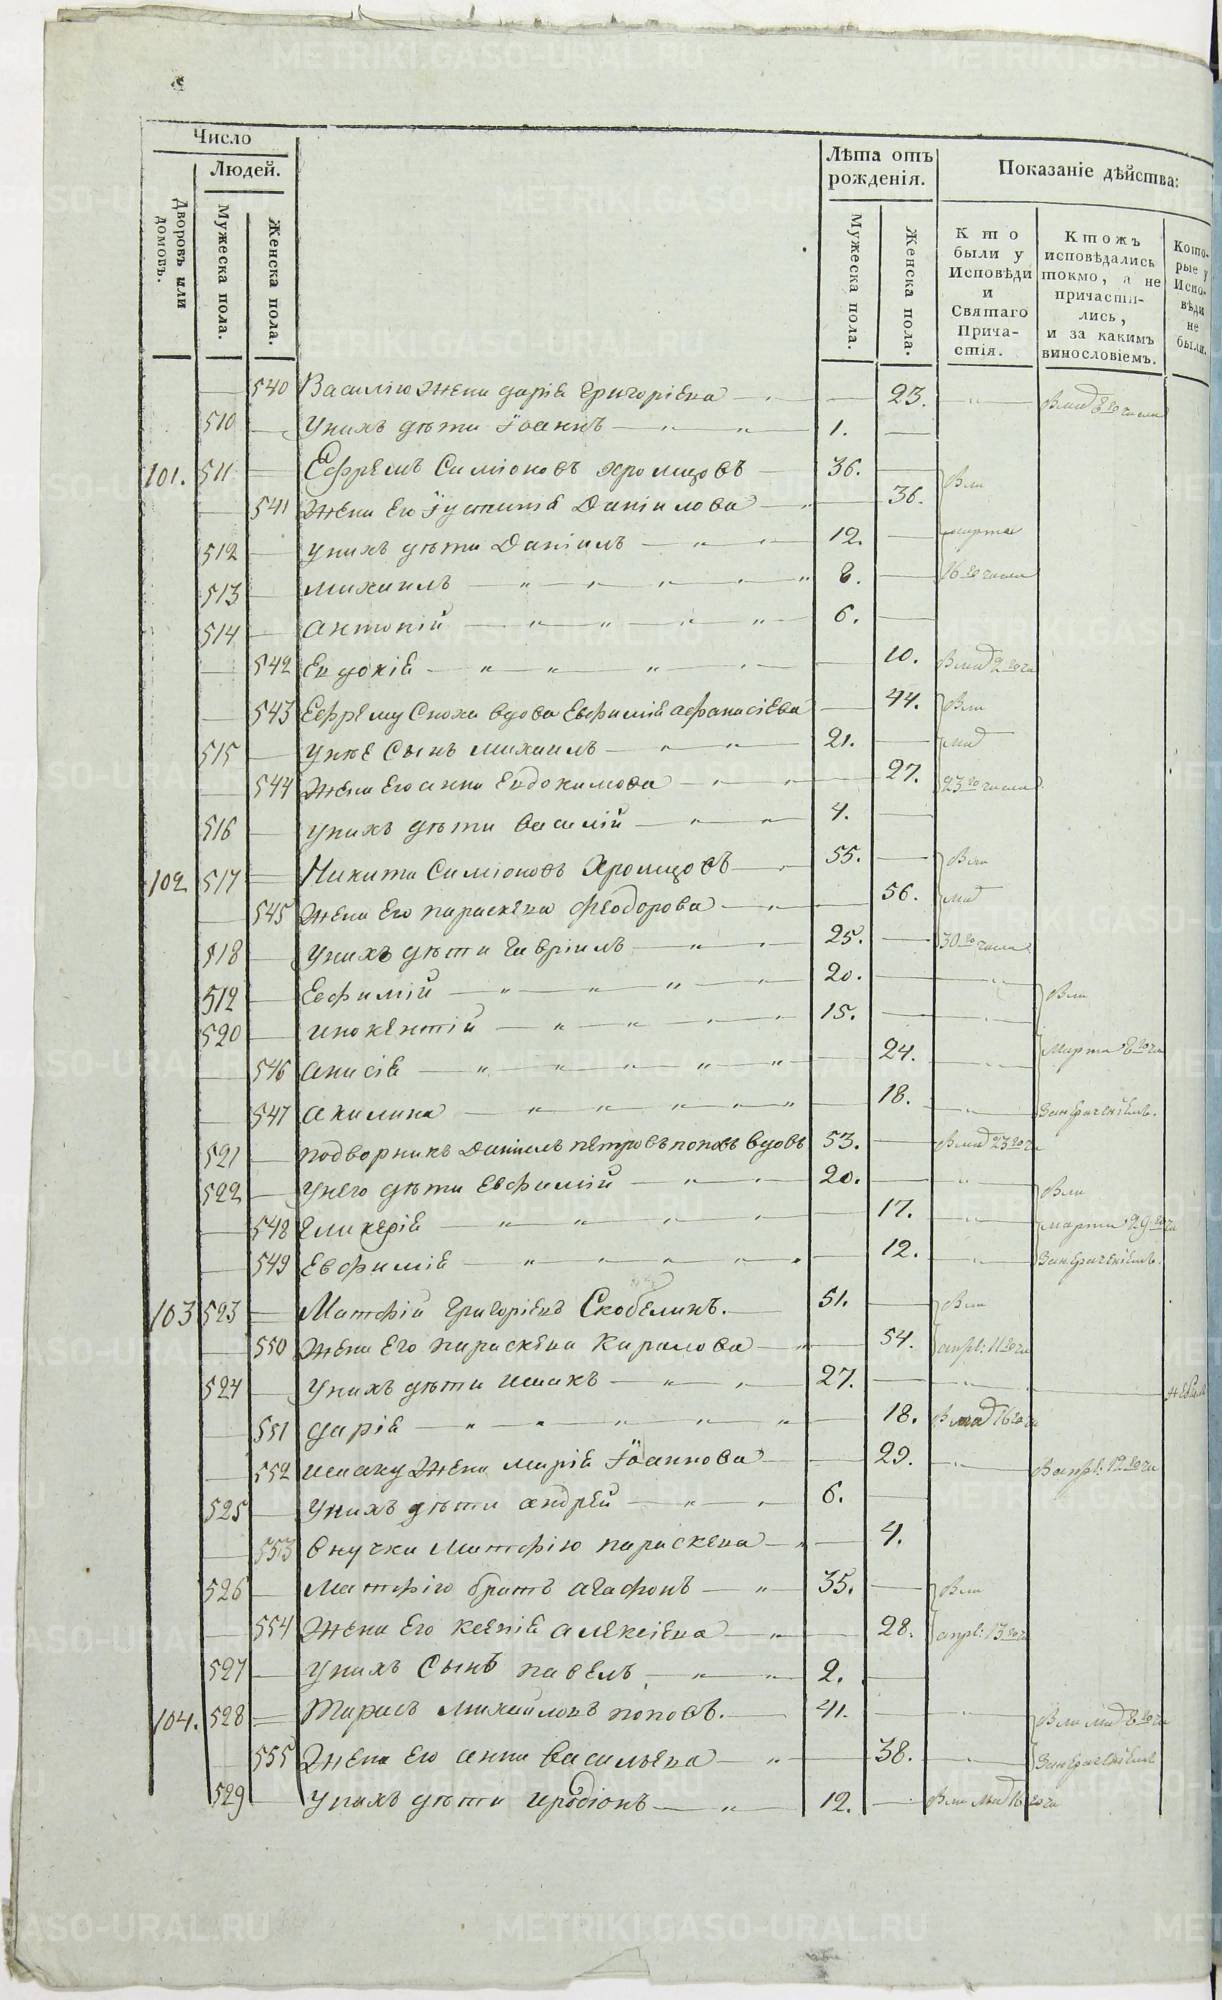 Число
Людей.
Дворовъ или домовъ.
Мужеска пола.
Женска пола.
Лѣта отъ рожденія.
Мужеска пола.
Женска пола.
Показаніе дѣйства:
Кто были у Исповѣди и Святаго Прича-стія.
Ктожъ исповѣдались токмо, а не причасти-лись, и за какимъ винословіемъ.
Кото-рые у Испо-вѣди не были.
540 Василію Жена дарія Григоріева 23.
510 Унихъ дѣти Іоаннъ 1.
101. 511 Ефремъ Симіоновъ Хромцовъ 36. Вли
541 Жена Его Іустинія Даніилова 36.
512 Унихъ дѣти Даніилъ 12. марта
513 Михаилъ 8. 16го числа
514 антоній 6.
542 Евдокія 10.
543 Ефрему Сноха вдова Евфимія афанасіева 44. Вли
515 Унее Сынъ Михаилъ 21. маД
544 Жена Его анна Евдокимова 27. 23го числа
516 Унихъ дѣти Василій 4.
102 517 Никита Симіоновъ Хромцовъ 55. Вли
545 Жена Его параскева феодорова 56. маД
518 Унихъ дѣти Гавріилъ 25. 30го числа
519 Евфимій 20. Вли
520 инокентій 15.
546 анисія 24. Марта 8го чи
547 акилина 18.
521 подворникъ Даніилъ петровъ поповъ вдовъ 53. В маД 23го чи
522 Унего дѣти Евфимій 20. Вли
548 Гликерія 17. марта 29го чи
549 Евфимія 12.
103 523 Матфій Григоріевъ Скобелинъ. 51. Вли
550 Жена Его параскева Кирилова 54. апрѣ: 11го чи
524 Унихъ дѣти исаакъ 27.
551 дарія 18. В маД 16го чи
552 исааку Жена марія Іоаннова 29. В апрѣ: 12го чи
525 Унихъ дѣти андрей 6.
553 внучка Матфію параскева 4.
526 Матфію братъ агафонъ 35. Вли
554 Жена Его ксенія алексіева 28. апрѣ: 13го чи
527 Унихъ Сынъ павелъ 2.
104. 528 Тарасъ михайловъ поповъ. 41. Вли маД 8го чи
555 Жена Его анна васильева 38.
529 Унихъ дѣти иродіонъ 12. Вли маД 16го чи
METRIKI.GASO-URAL.RU